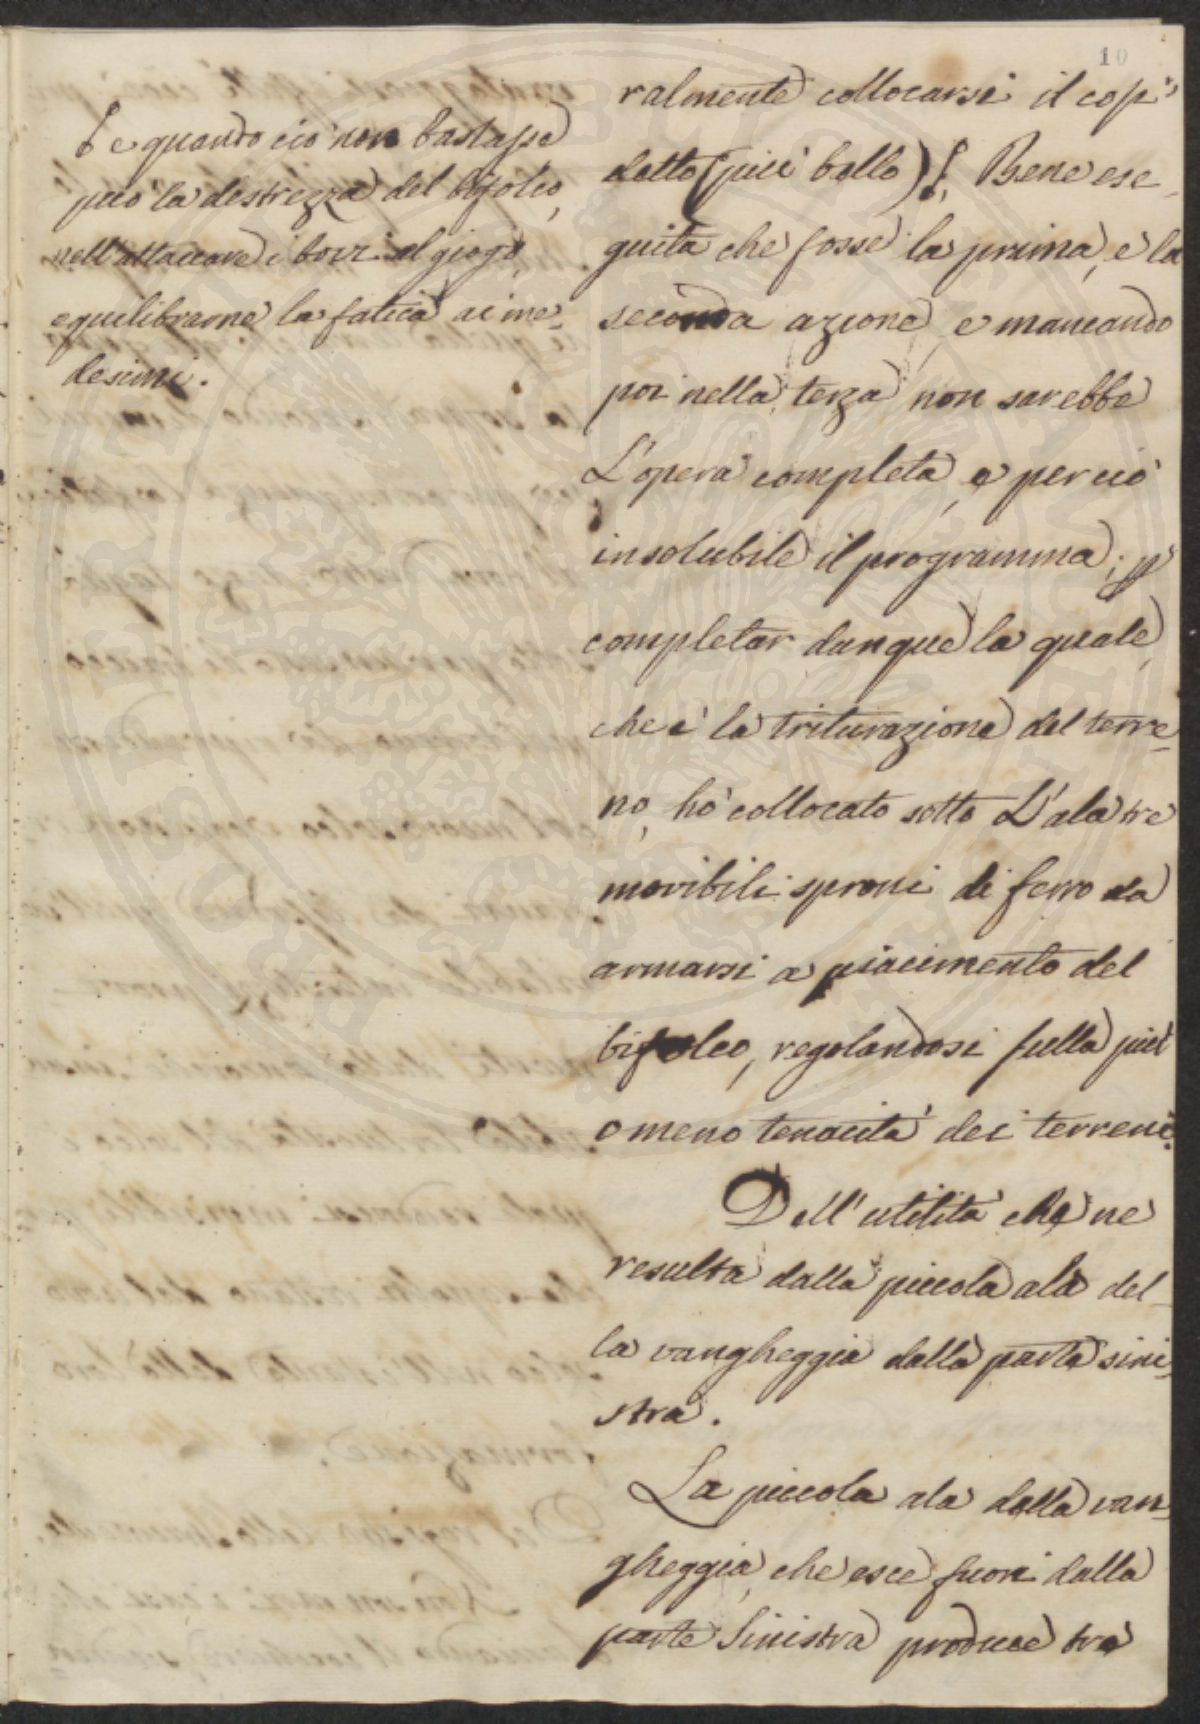 10
ralmente collocarsi il cosi
detto (più bello) ꝭ. Bene ese-
guita che fosse la prima, e la
seconda azione, e mancando
poi nella terza non sarebbe
L'opera completa, e perciò
insolubile il programma; p
completar dunque la quale,
che è la triturazione del terre-
no, hò collocato sotto L'ala tre
movibili sproni di ferro da
armarsi a piacimento del
bifolco, regolandosi sulla più
o meno tenacità dei terreni.
Dell'utilità che ne
resulta dalla piccola ala del-
la vangheggia dalla parte sini-
stra.
La piccola ala della van-
gheggia, che esce fuori dalla
parte Sinistra produce tre
ꝭ e quando ciò non bastasse
può la destrezza del bifolco,
nell'attaccare i bovi al giogo,
equilibrarne la fatica ai me-
desimi.